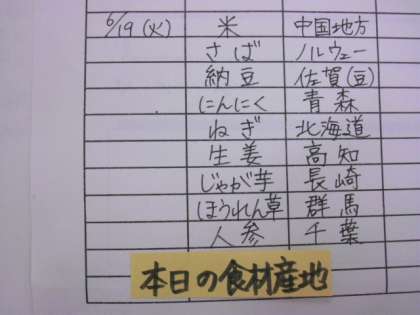 6/19(火) 米 中国地方
さば ノルウェー
納豆 佐賀(豆)
にんにく 青森
ねぎ 北海道
生姜 高知
じゃが芋 長崎
ほうれん草 群馬
人参 千葉
本日の食材産地